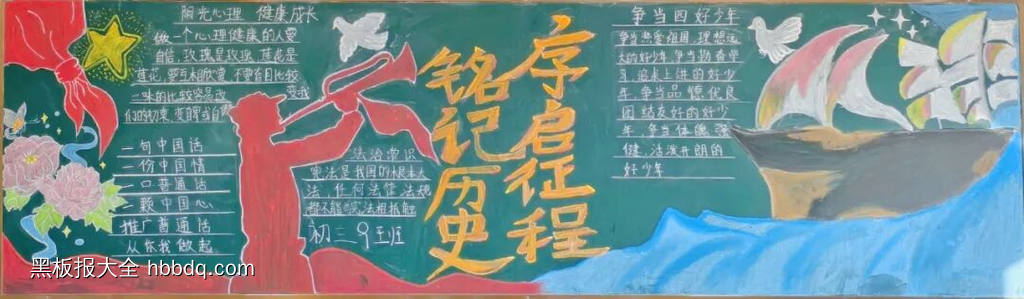 阳光心理 健康成长
做一个心理健康的人要
自信,玫瑰是玫瑰,莲花是
莲花,要互相欣赏,不要盲目比较
一味的比较容易改变我
们的初衷
一句中国话
一份中国情
一口普通话
一颗中国心
推广普通话
从你我做起
法治常识
宪法是我国的根本大
法,任何法律法规
都不能与宪法相抵触
初二9班
铭记历史
序启征程
争当四好少年
争当热爱祖国、理想远
大的好少年,争当勤奋学
习、追求上进的好少
年,争当品德优良
团结友好的好少
年,争当体魄强
健、活泼开朗的
好少年
黑板报大全 hbbdq.com